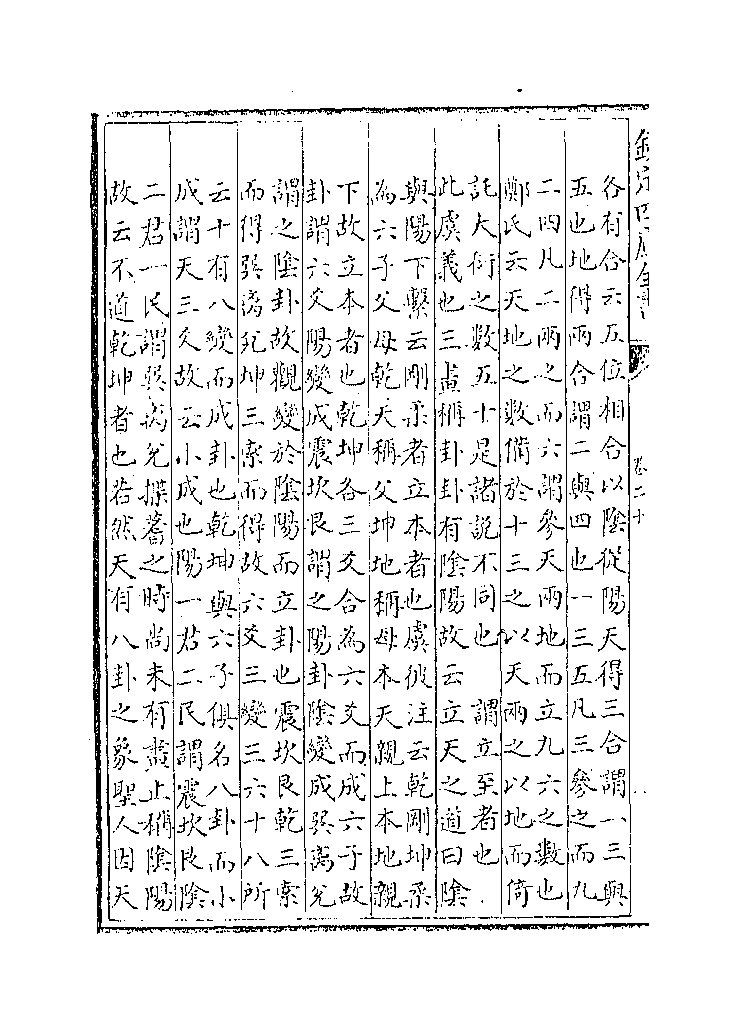 欽定四庫全書
卷二十
各有合云五位相合以陰從陽天得三合謂一三與
五也地得兩合謂二與四也一三五凡三參之而九
二四凡二兩之而六謂參天兩地而立九六之數也
鄭氏云天地之數備於十三之以天兩之以地而倚
託大衍之數五十是諸說不同也　謂立至者也
此虞義也三畫稱卦卦有陰陽故云立天之道曰陰
與陽下繫云剛柔者立本者也虞彼注云乾剛坤柔
為六子父母乾天稱父坤地稱母本天親上本地親
下故立本者也乾坤各三爻合為六爻而成六子故
卦謂六爻陽變成震坎艮謂之陽卦陰變成巽离兌
謂之陰卦故觀變於陰陽而立卦也震坎艮乾三索
而得巽离兌坤三索而得故六爻三變三六十八所
云十有八變而成卦也乾坤與六子俱名八卦而小
成謂天三爻故云小成也陽一君二民謂震坎艮陰
二君一民謂巽离兌揲蓍之時尚未有畫止稱陰陽
故云不道乾坤者也若然天有八卦之象聖人因天